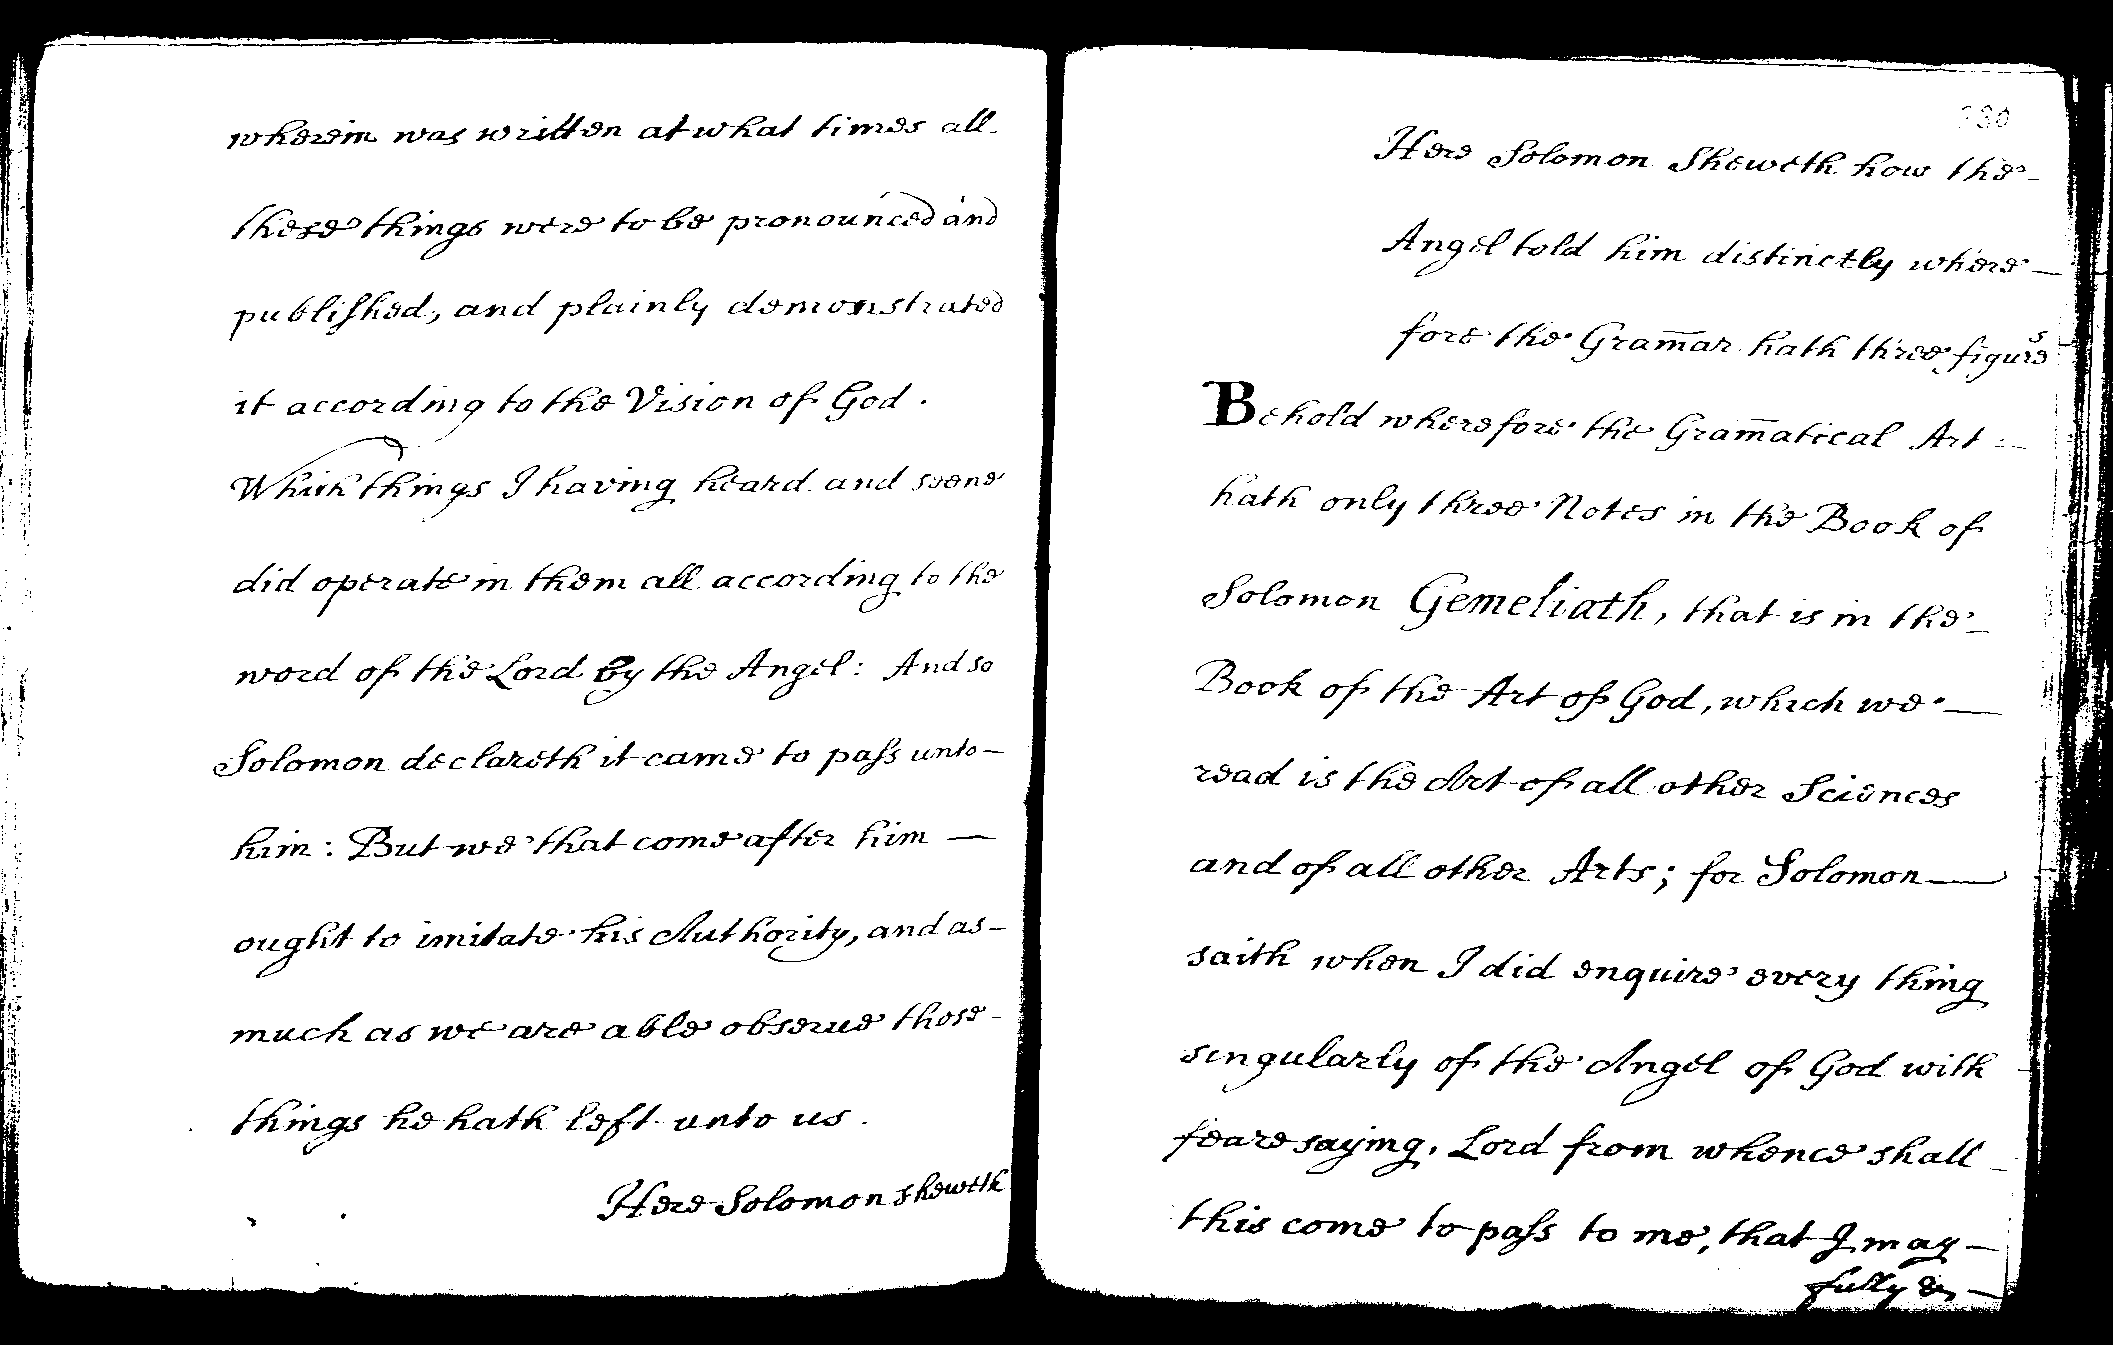 wherein was written at what times all
these things were to be pronounced and
published, and plainly demonstrated
it according to the Vision of God.
Which things I having heard and seene
did operate in them all according to the
word of the Lord by the Angel: And so
Solomon declareth it came to pass unto-
him: But we that come after him —
ought to imitate his Authority, and as-
much as we are able observe those-
things he hath left unto us.
Here Solomon sheweth
Here Solomon Sheweth how the-
Angel told him distinctly where-
fore the Gram̄ar hath three figures
Behold wherefore the Gram̄atical Art-
hath only three Notes in the Book of
Solomon Gemeliath, that is in the-
Book of the Art of God, which we —
read is the Art of all other Sciences
and of all other Arts; for Solomon —
saith when I did enquire every thing
singularly of the Angel of God with
feare saying, Lord from whence shall
this come to pass to me, that I may —
fully &